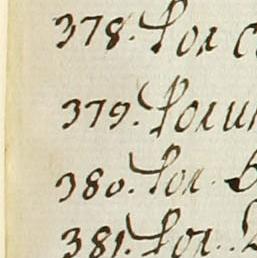 378. Por
379. Por un
380. Por
381. Por